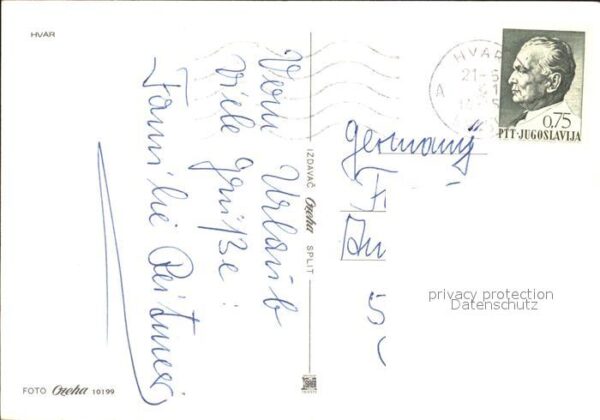 HVAR
Vom Urlaub
viele Grüße!
Familie
IZDAVAČ Ozeha SPLIT
FOTO Ozeha 10199
HVAR
21-6
A
0.75
PTT-JUGOSLAVIJA
germany
F
5
privacy protection
Datenschutz